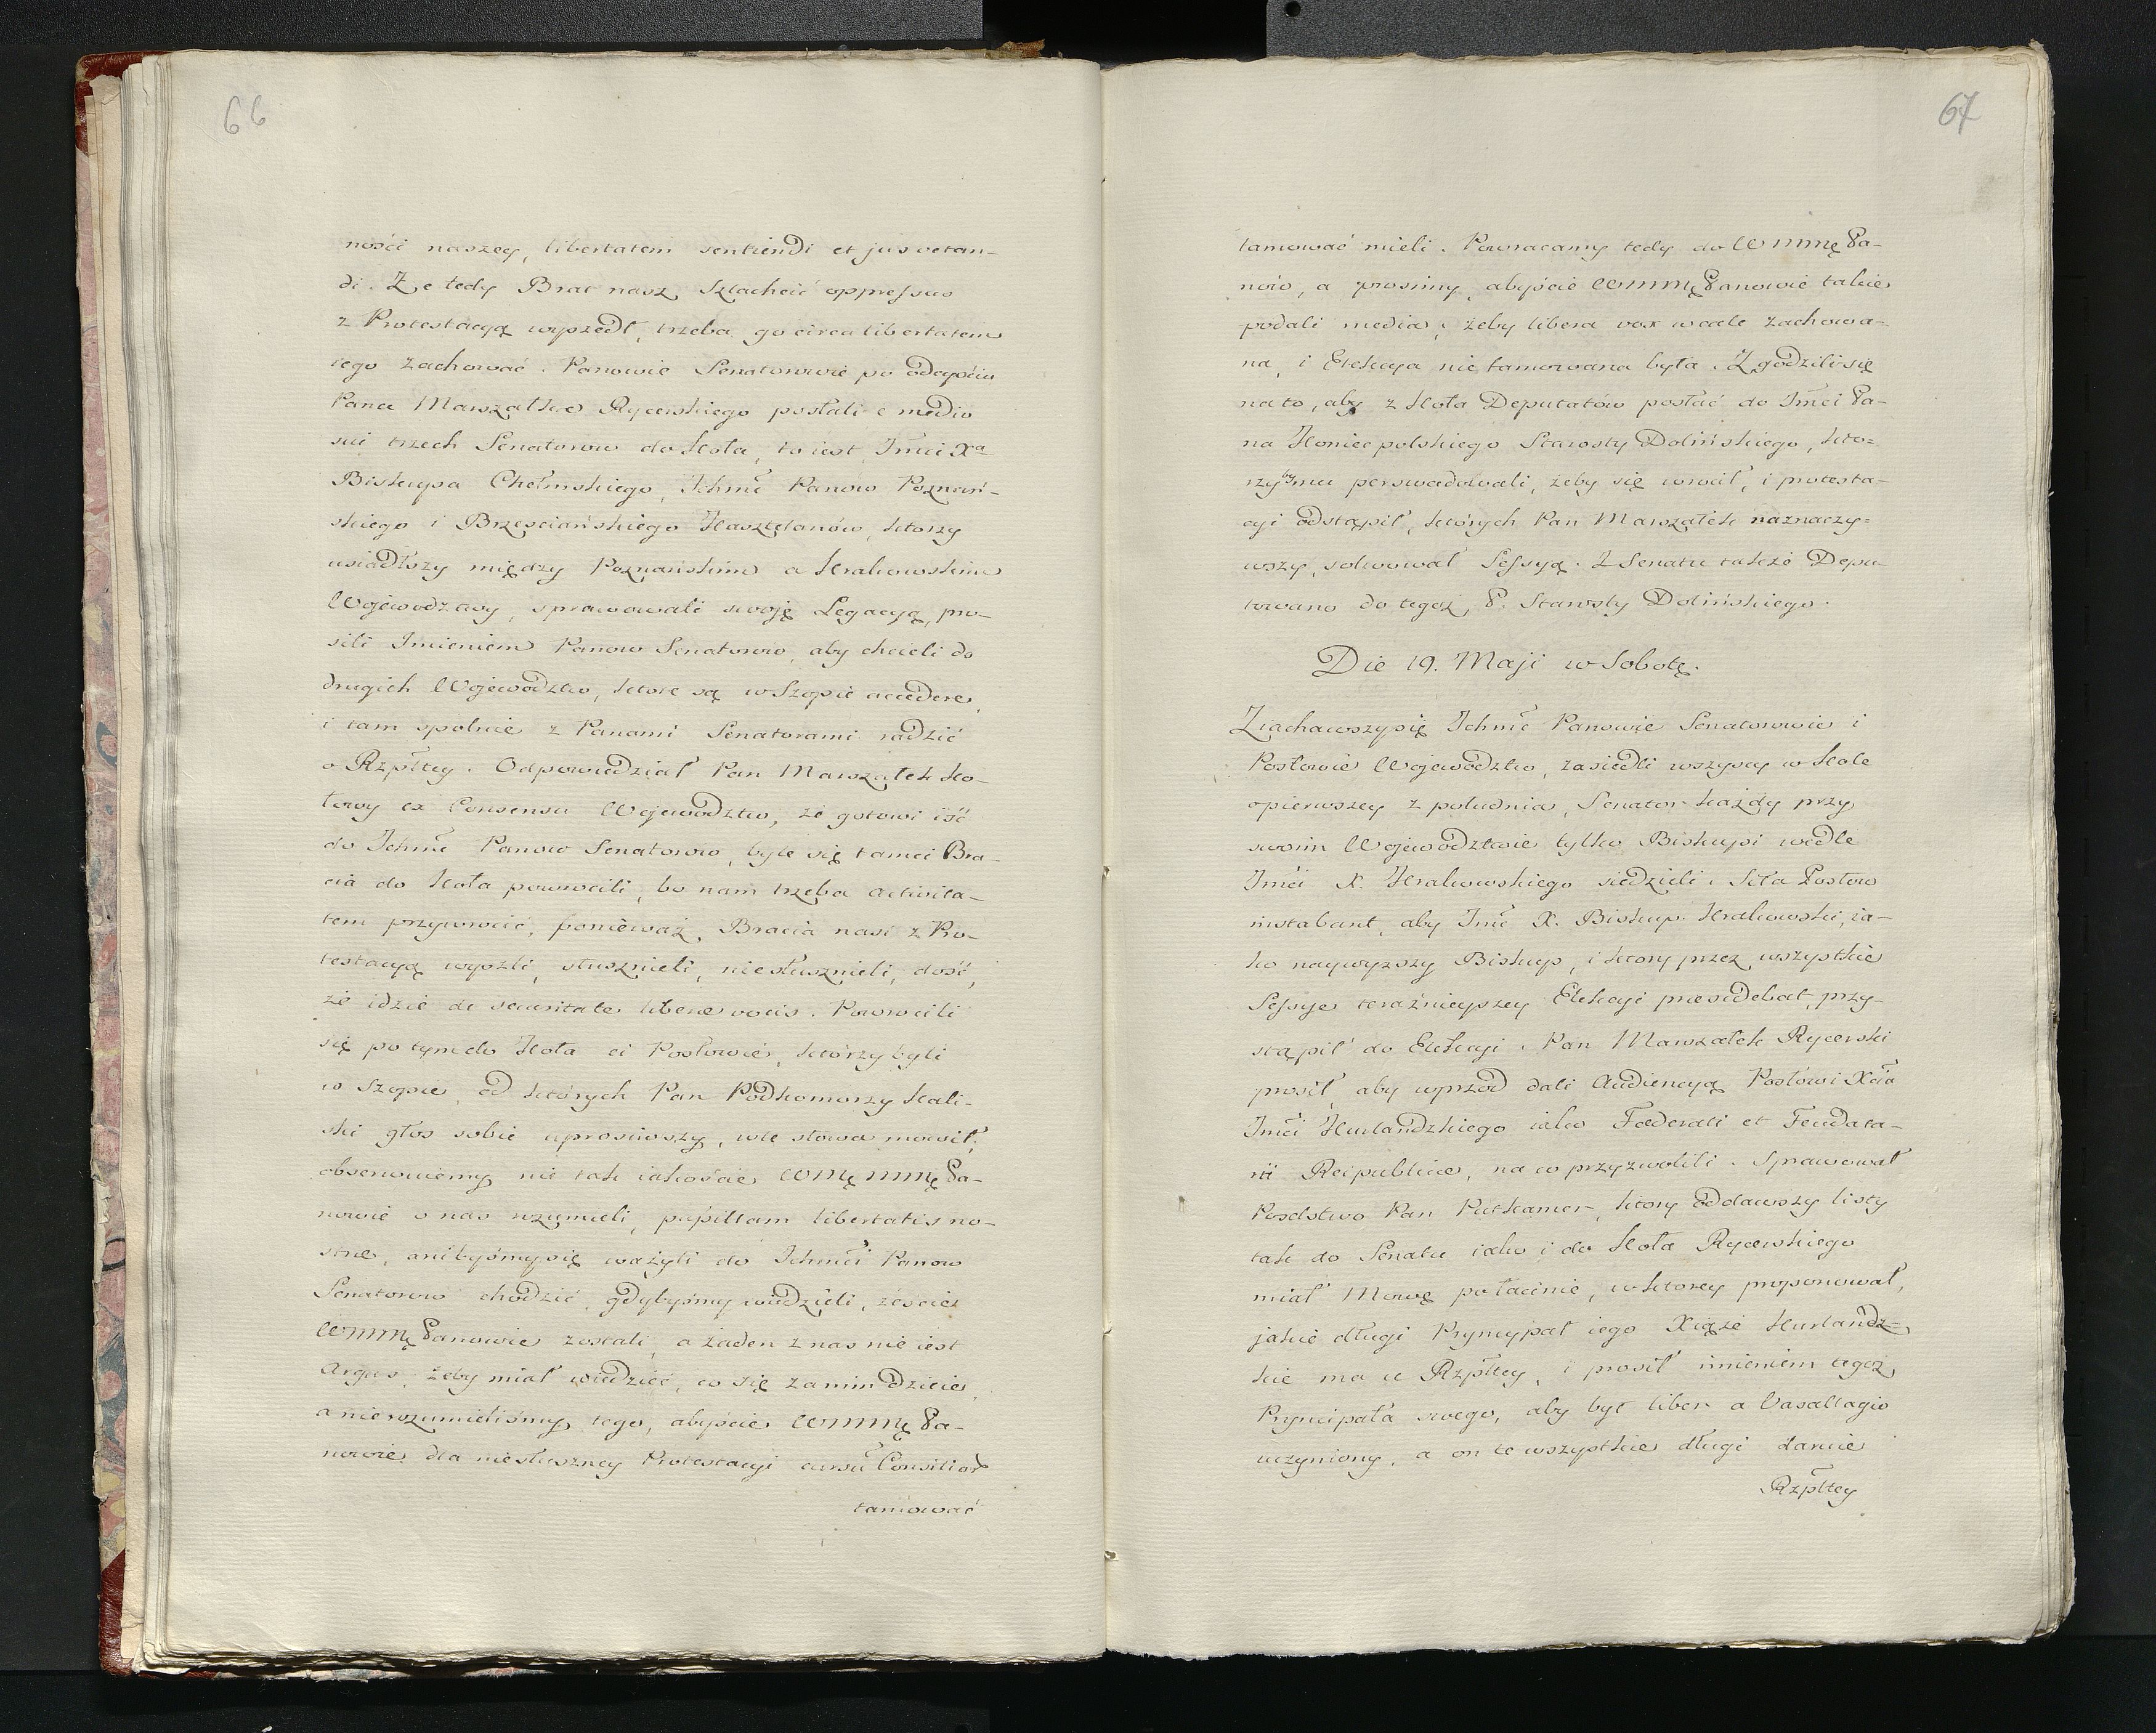 66
ności naszey, libertatem sentiendi et jus vetan-
di. Ze tedy Brat nasz Szlachcic oppressus
z Protestacyą wyszedł, trzeba go circa libertatem
iego zachować. Panowie Senatorowie po odeyściu
Pana Marszałka Rycerskiego posłali e medio
sui trzech Senatorow do Koła, to iest, Jmci Xa
Biskupa Chełmskiego, Ichmć Panow Poznań-
skiego i Brzesciańskiego Kasztelanów, ktorzy
usiadłszy między Poznańskim a Krakowskim
Wojewodztwy, sprawowali swoję Legacyą, pro-
sili Imieniem Panow Senatorow, aby chcieli do
drugich Wojewodztw, ktore są w Szopie accedere,
i tam spolnie z Panami Senatorami radzić
o Rzpltey. Odpowiedział Pan Marszałek Ko-
łowy ex Consensu Wojewodztw, że gotowi iść
do Ichmć Panow Senatorow, byle się tamci Bra-
cia do Koła powrocili, bo nam trzeba activita-
tem przywrocić, ponieważ Bracia nasi z Pro-
testacyą wyszli, słusznieli, niesłusznieli, dość,
że idzie de securitate liberæ vocis. Powrocili
się po tym do Koła ci Posłowie, którzy byli
w Szopie, od których Pan Podkomorzy Kali-
ski głos sobie uprosiwszy, w te słowa mowił,
obserwuiemy nie tak iakoście WMę mmę Pa-
nowie o nas rozumieli, pupillam libertatis no-
stræ, anibyśmy się ważyli do Ichmći Panow
Senatorow chodzić, gdybyśmy wiedzieli, żeście
Wmmę Panowie zostali, a żaden z nas nie iest
Argus, żeby miał wiedzieć, co się za nim dzieie,
a nierozumieliśmy tego, abyście Wmmę Pa-
nowie dla niesłuszney Protestacyi cursu Consilior
tamować
67
tamować mieli. Powracamy tedy do Wmmę Pa-
now, a prosimy, abyście Wmmę Panowie takie
podali media, żeby libera vox wcale zachowa=
na, i Elekcya nie tamowana była. Zgodzili się
na to, aby z Koła Deputatów posłać do Jmći Pa-
na Koniecpolskiego Starosty Dolińskiego, kto=
rzyby Jmu perswadowali, żeby się wrocił, i protesta-
cyi odstąpił, których Pan Marszałek naznaczy=
wszy, solwował Sessyą. Z Senatu także Depu-
towano do tegoż P. Starosty Dolińskiego.
Die 19. Maji w Sobotę.
Ziachawszy się Ichmć Panowie Senatorowie i
Posłowie Wojewodztw, zasiedli wszyscy w Kole
o pierwszey z południa, Senator każdy przy
swoim Wojewodztwie tylko Biskupi wedle
Jmći X. Krakowskiego siedzieli. Siła Posłow
instabant, aby Jmć X. Biskup Krakowski, ia-
ko naywyższy Biskup, i ktory przez wszystkie
Sessye teraźnieyszey Elekcyi præsidebat, przy-
stąpił do Elekcyi. Pan Marszałek Rycerski
prosił, aby wprzod dali Audiencyą Posłowi Xcia
Jmći Kurlandzkiego iako Fœderati et Feudata-
rii Reipublicæ, na co przyzwolili. Sprawował
Poselstwo Pan Putkamer, ktory oddawszy listy
tak do Senatu iako i do Koła Rycerskiego
miał Mowę po łacinie, w ktorey proponował,
jakie długi Pryncypał iego Xiąże Kurlandz=
kie ma u Rzpltey, i prosił imieniem tegoż
Pryncypała swego, aby był liber a Vasallagio
uczyniony, a on te wszystkie długi daruie
Rzpltey